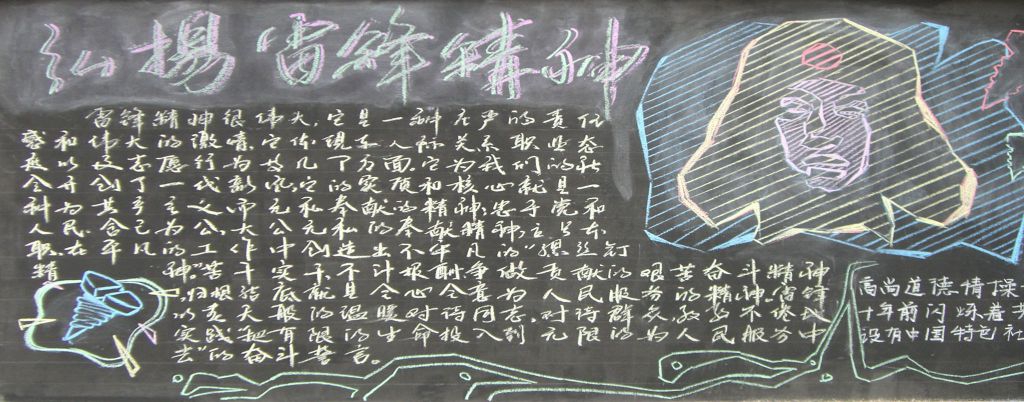 弘揚雷锋精神
雷锋精神很伟大,它是一种庄严的责任
感和伟大的激情,它体现在人际关系职业态
度以及志愿行为等几个方面,它为我们的社
会开创了一代新风,它的实质和核心就是一
种为共产主义,而无私奉献的精神;忠于党和
人民、舍己为公、大公无私的奉献精神;立足本
职、在平凡的工作中创造出不平凡的“螺丝钉
精神”苦干实干、不计报酬、争做贡献的艰苦奋斗精神
,归根结底就是全心全意为人民服务的精神。雷锋
以夏天般的温暖对待同志,对待群众孜孜不倦
实践把有限的生命投入到无限的为人民服务中
去”的奋斗誓言。
高尚道德情操
十年前闪烁着
没有中国特色社